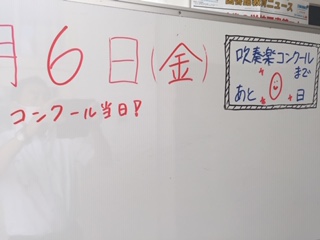 月6日(金)
コンクール当日!
吹奏楽コンクール
まで
あと 0 日